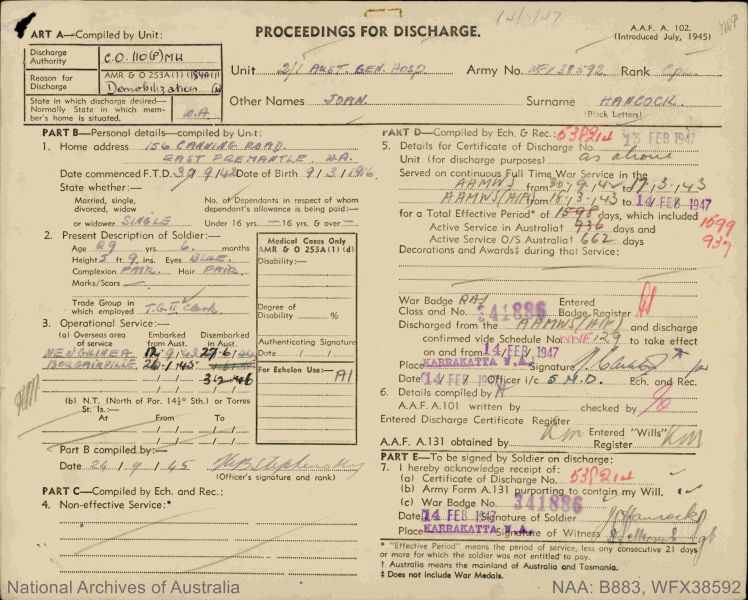 PROCEEDINGS FOR DISCHARGE.
14/2/47
A.A.F. A. 102.
(Introduced July, 1945)
ART A—Compiled by Unit:
Discharge Authority C.O. 110(P)MH
Reason for Discharge AMR & O 253A(1)
Demobilization
State in which discharge desired—Normally State in which member's home is situated. W.A.
Unit 2/1 AUST. GEN. HOSP. Army No. WFX38592 Rank Cpl.
Other Names JOAN. Surname HANCOCK
(Block Letters)
PART B—Personal details—compiled by Unit:
1. Home address 156 CANNING ROAD.
EAST FREMANTLE. W.A.
Date commenced F.T.D. 30/9/42 Date of Birth 9/3/1916.
State whether:—
Married, single, divorced, widow or widower SINGLE
No. of Dependants in respect of whom dependant's allowance is being paid:—
Under 16 yrs. — 16 yrs. & over —
2. Present Description of Soldier:—
Age 29 yrs. 6. months
Height 5 ft. 9 ins. Eyes BLUE.
Complexion FAIR. Hair FAIR.
Marks/Scars —
Trade Group in which employed T.G. II Clerk
Medical Cases Only
AMR & O 253A(1) (d)
Disability:—
Degree of Disability %
Authenticating Signature
Date / /
For Echelon Use:— A1
3. Operational Service:—
(a) Overseas area of service
Embarked from Aust.
Disembarked in Aust.
NEW GUINEA 9/43 27/6/44
BOUGAINVILLE 26/1/45
3/2/46
(b) N.T. (North of Par. 14½° Sth.) or Torres St. Is.:—
At From To
Part B compiled by:—
Date 24/9/45
(Officer's signature and rank)
PART C—Compiled by Ech. and Rec.:
4. Non-effective Service:*
PART D—Compiled by Ech. & Rec.:
5. Details for Certificate of Discharge No. 538214
13 FEB 1947
Unit (for discharge purposes) as above
Served on continuous Full Time War Service in the
AAMWS from 30/9/42 to 17/3/43
AAMWS (AIF) from 18/3/43 to 14 FEB 1947
for a Total Effective Period* of 1598 days, which included 1599
Active Service in Australia† 936 days and 937
Active Service O/S Australia† 662 days
Decorations and Awards‡ during that Service:
War Badge RAS Entered
Class and No. 341886 Badge Register
Discharged from the AAMWS (AIF) and discharge
confirmed vide Schedule No. WWF 129 to take effect
on and from 14 FEB 1947
Place KARRAKATTA W.A. Signature
Date 14 FEB 1947 Officer i/c 5 M.D. Ech. and Rec.
6. Details compiled by
A.A.F. A.101 written by checked by
Entered Discharge Certificate Register KM
A.A.F. A.131 obtained by Entered "Wills" Register KM
PART E—To be signed by Soldier on discharge:
7. I hereby acknowledge receipt of:
(a) Certificate of Discharge No. 538214
(b) Army Form A.131 purporting to contain my Will.
(c) War Badge No. 341886
Date 14 FEB 1947 Signature of Soldier J Hancock
Place KARRAKATTA W.A. Signature of Witness
* "Effective Period" means the period of service, less any consecutive 21 days
or more for which the soldier was not entitled to pay.
† Australia means the mainland of Australia and Tasmania.
‡ Does not include War Medals.
National Archives of Australia
NAA: B883, WFX38592